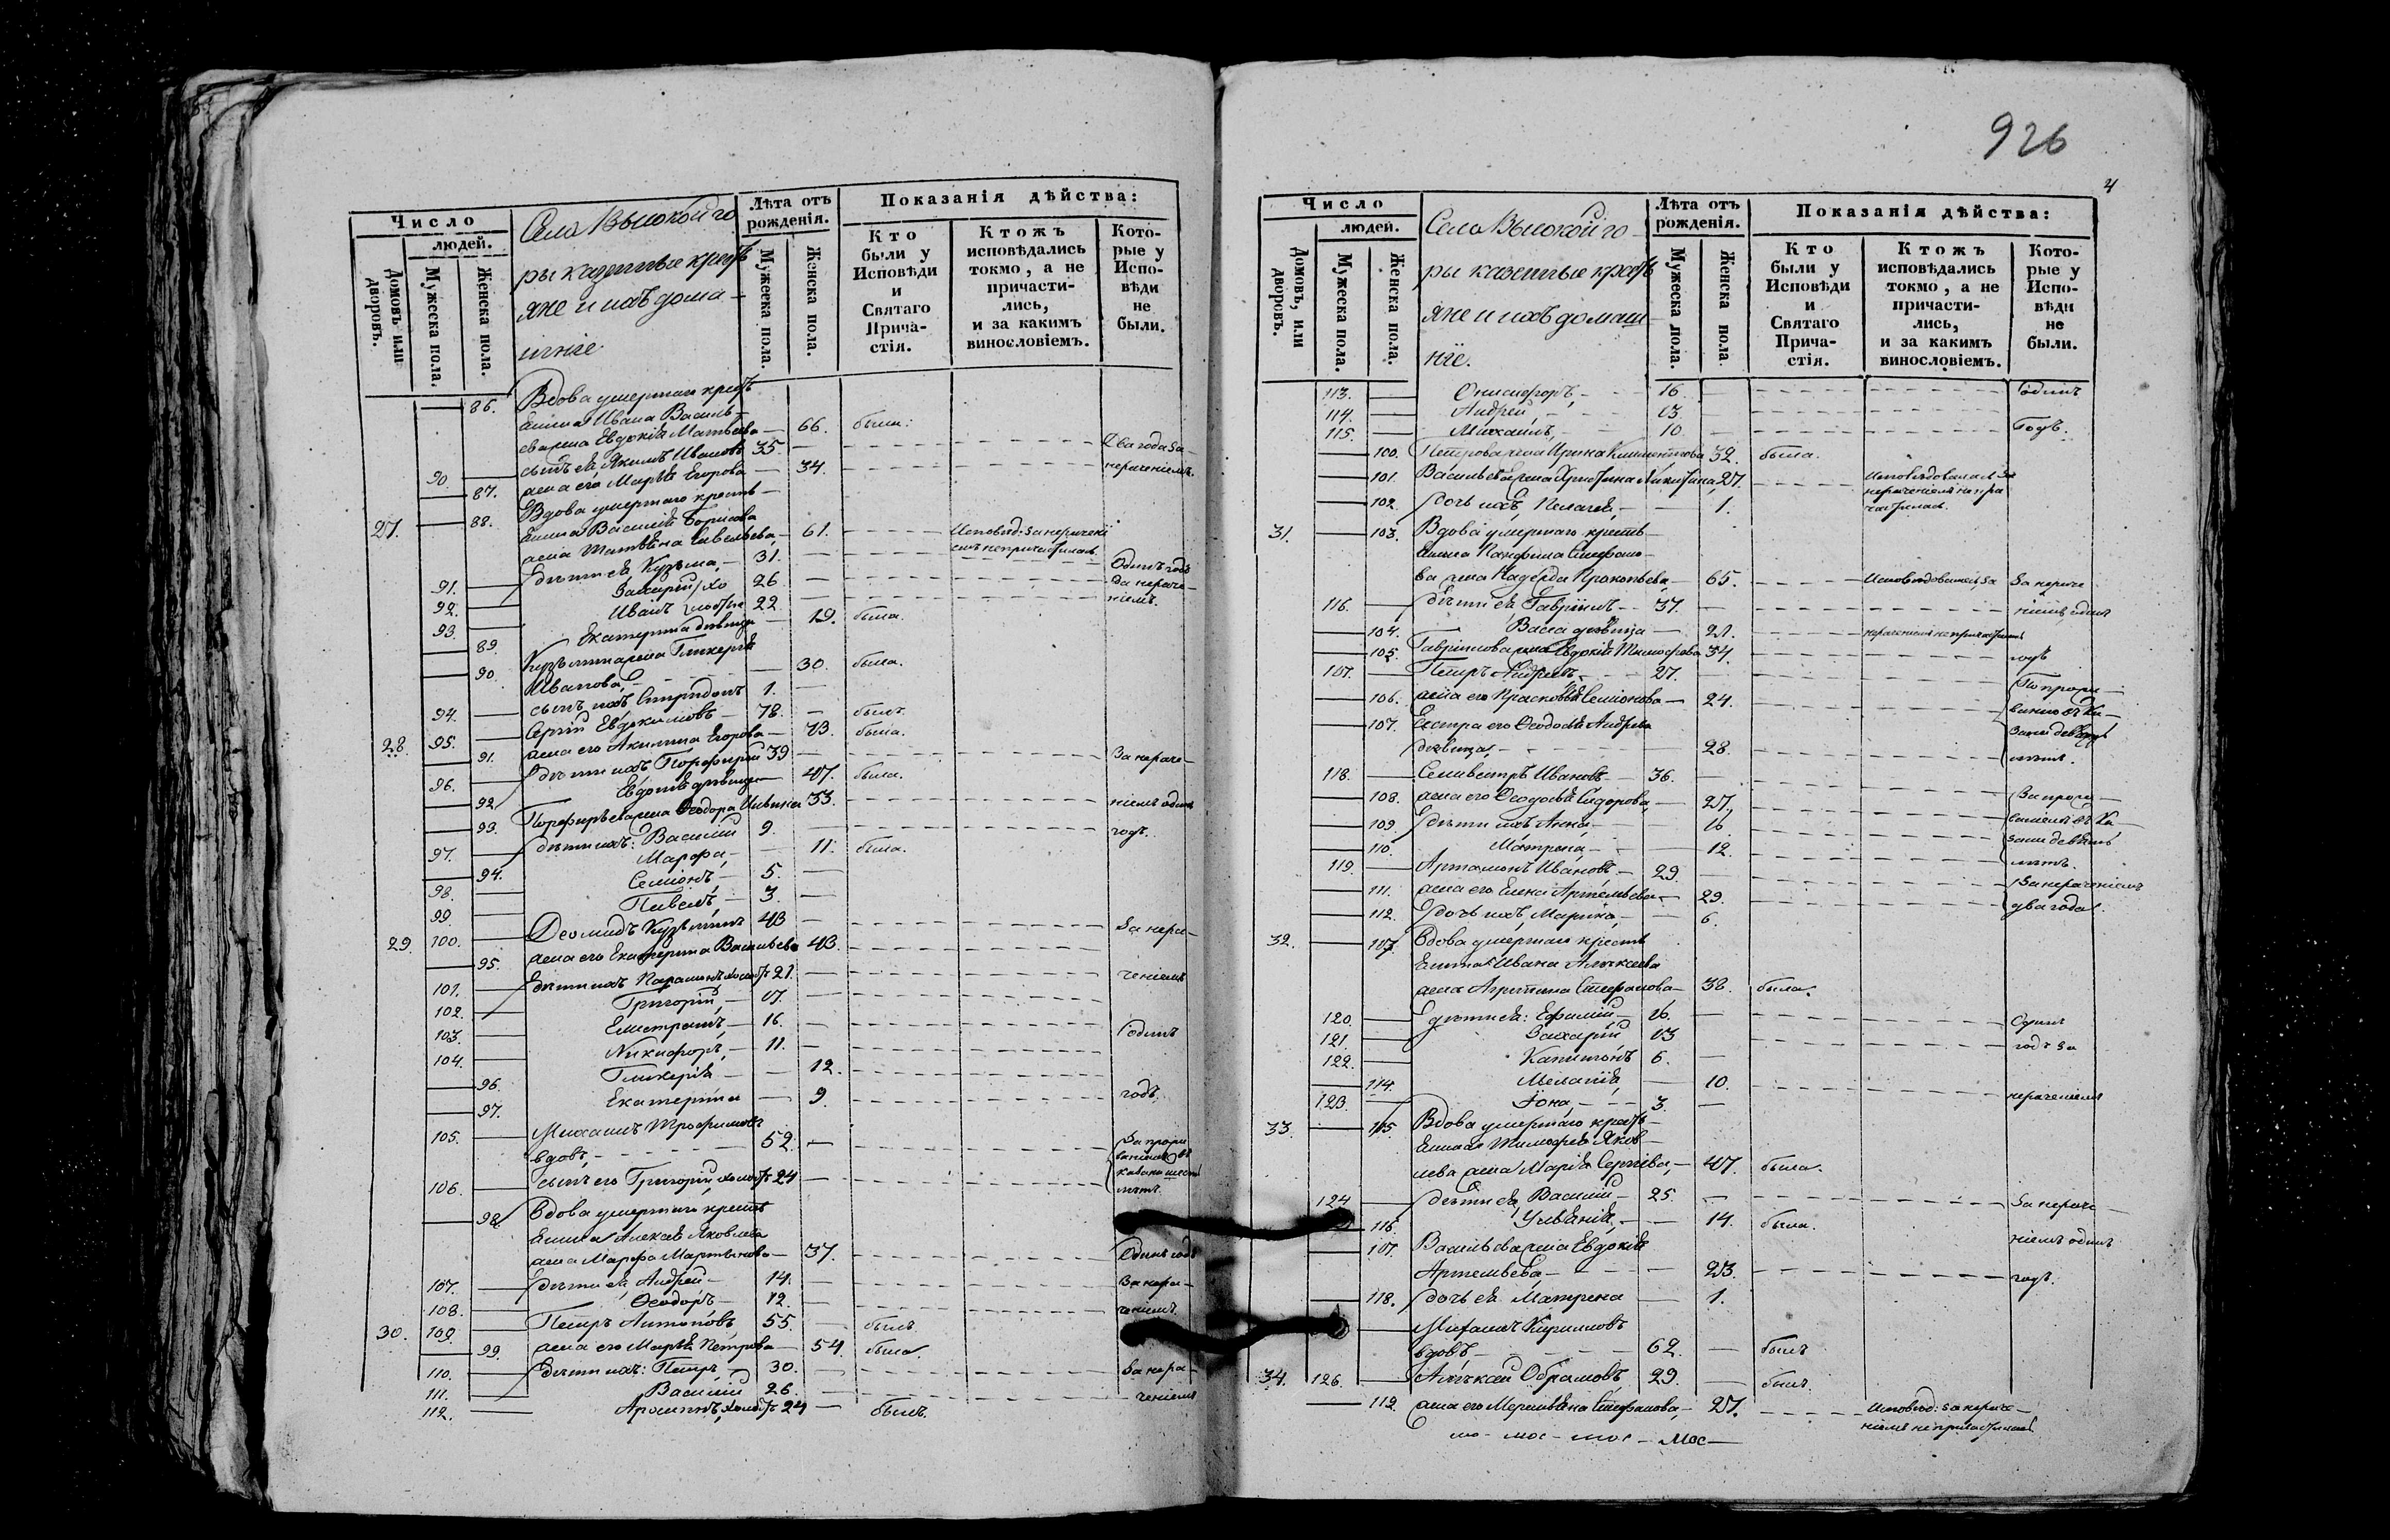 Число
людей.
Домовъ или дворовъ.
Мужеска пола.
Женска пола.
Села Высокой го
ры казенные кресть
яне и ихъ дома-
шніе
Лѣта отъ рожденія.
Мужеска пола.
Женска пола.
Показанія дѣйства:
Кто были у Исповѣди и Святаго Причастія.
Ктожъ исповѣдались токмо, а не причастились, и за какимъ винословіемъ.
Которые у Исповѣди не были.
86. Вдова умершаго кресть
янина Ивана Василь-
ева жена Евдокія Матвѣева 66. была.
90. сынъ ея Якимъ Ивановъ 35. Два года за
87. жена его Марья Егорова 34. нераченіемъ.
27. 88. Вдова умершаго кресть-
янина Василія Борисова
жена Татьяна Савельева 61. Исповѣд: за нерачені
емъ не причастилась
91. дѣти ея Кузьма 31. Одинъ годъ
92. Захарій хо 26 за нераче-
93. Иванъ лосты 22 ніемъ.
89. Екатерина дѣвица 19. была.
90. Кузьмина жена Гликерія
Иванова 30. была.
94. сынъ ихъ Спиридонъ 1.
28. 95. Сергій Евдокимовъ 78. былъ.
91. жена его Акилина Егорова 73. была.
96. дѣти ихъ Порфирій 39 За нераче-
92. Евдокія дѣвица 47. была.
93. Порфирьева жена Ѳеодора Ильина 33. ніемъ одинъ
97. дѣти ихъ: Василій 9. годъ.
94. Марфа 11. была.
98. Семіонъ 5.
99. Павелъ 3.
29. 100. Деомидъ Кузьминъ 43 За нера-
95. жена его Екатерина Васильева 43.
101. дѣти ихъ Парамонъ холостъ 21. ченіемъ
102. Григорій 17.
103. Елистратъ 16. одинъ
104. Никифоръ 11.
96. Гликерія 12.
97. Екатерина 9. годъ.
105. Михаилъ Трофимовъ
вдовъ 52.
106. сынъ его Григорій холостъ 24
98. Вдова умершаго кресть
янина Алексѣя Яковлева
жена Марфа Мартынова 37. Одинъ годъ
107. дѣти ея Андрей 14. За нера-
108. Ѳеодоръ 12. ченіемъ.
30. 109. Петръ Антоновъ 55. былъ
99. жена его Марья Петрова 54. была.
110. дѣти ихъ: Петръ 30. За нера-
111. Василій 26. ченіемъ
112. холостъ 24 былъ.
926
4
Число
людей.
Домовъ, или дворовъ.
Мужеска пола.
Женска пола.
Села Высокой го-
ры казенные кресть
яне и ихъ домаш
ніе.
Лѣта отъ рожденія.
Мужеска пола.
Женска пола
Показанія дѣйства:
Кто были у Исповѣди и Святаго Причастія.
Ктожъ исповѣдались токмо, а не причастились, и за какимъ винословіемъ.
Которые у Исповѣди не были.
113. Онисифоръ 16. одинъ
114. Андрей 13.
115. Михаилъ 10. Годъ.
100. Петрова жена Ирина 32. была.
101. Васильева жена Христина Никитина 27. Исповѣдовалась За
нераченіемъ не при
частилась.
102. дочь ихъ Пелагея 1.
31. 103. Вдова умершаго кресть
янина Панфила Стефано-
ва жена Надежда Прокопьева 65. Исповѣдовалась, за За нераче
116. дѣти ея Гавріилъ 37. ніемъ одинъ
104. Васса дѣвица 21. нераченіемъ не причастилась
105. Гаврилова жена Евдокія Тимофѣева 34. годъ
117. Петръ Андреевъ 27.
106. жена его Прасковья Семіонова 24.
107. Сестра его Ѳеодосья Андреева
дѣвица 28.
118. Селиверстръ Ивановъ 36.
108. жена его Ѳеодосья Сидорова 27.
109. дѣти ихъ Анна 16
110. Матрона 12.
119. Артамонъ Ивановъ 29. За нераченіемъ
111. жена его Елена Артемьева 29. два года.
112. дочь ихъ Марина 6.
32. 113. Вдова умершаго кресть
янина Ивана Алексеева
жена Агрипина Стефанова 38. была.
120. дѣти ея: Ефимій 16. Одинъ
121. Захарій 13 годъ за
122. Капитонъ 6.
114. Меланія 10.
123. Іона 3. нераченіемъ
33. 115. Вдова умершаго кресть-
янина Тимофея Яков-
лева жена Марія Сергѣева 47. была.
124. дѣти ея Василій 25. За нераче-
116. Ульянія 14. была.
117. Васильева жена Евдокія ніемъ одинъ
Артемьева 23. годъ.
118. дочь ея Матрена 1.
Михаилъ Кириловъ
вдовъ 62. былъ
34. 126. Алексѣй Обрамовъ 29. былъ.
119. жена его Стефанова 27. Исповѣд: за нераче-
ніемъ не причастилась